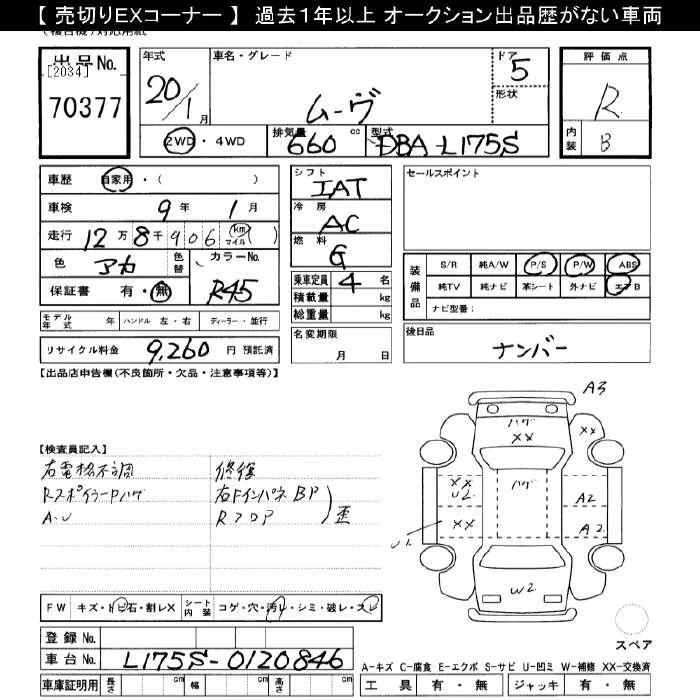 【 売切りEXコーナー 】 過去1年以上 オークション出品歴がない車両
出品No.
[2034]
70377
年式
20/1月
車名・グレード
ムーヴ
ドア
5
形状
評価点
R
内装
B
2WD・4WD
排気量
660 cc
型式
DBA-L175S
車歴 自家用・( )
車検 9年 1月
走行 12万8千906 (km マイル)
色 アカ
色替
カラーNo.
R45
保証書 有・無
シフト
IAT
冷房
AC
燃料
G
乗車定員 4名
積載量 kg
総重量 kg
セールスポイント
装備品
S/R 純A/W P/S P/W ABS
純TV 純ナビ 革シート 外ナビ エアB
ナビ型番:
モデル年式 年 ハンドル 左・右 ディーラー・並行
リサイクル料金 9,260 円 預託済
名変期限
月 日
後日品
ナンバー
【出品店申告欄(不良箇所・欠品・注意事項等)】
【検査員記入】
右電格不調
RスポイラーPハゲ
A・U
修復
右FインパネBP
Rフロア
歪
A3
ハゲ
XX
XX
ハゲ
XX
U2
XX
U2
A2
A2
W2
スペア
FW キズ・トビ石・割レX
シート内装 コゲ・穴・汚レ・シミ・破レ・スレ
登録No.
車台No. L175S-0120846
車庫証明用 長さ cm 幅 cm 高さ cm
A-キズ C-腐食 E-エクボ S-サビ U-凹ミ W-補修 XX-交換済
工具 有・無 ジャッキ 有・無